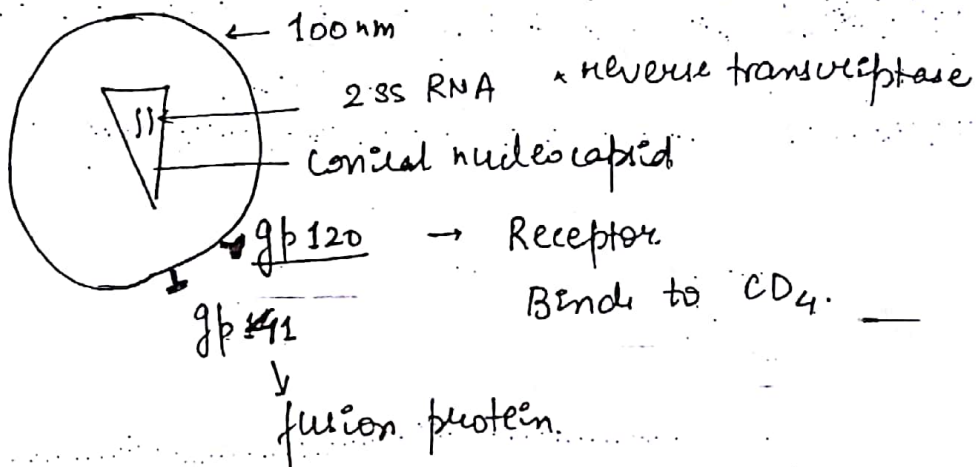 ← 100 nm
2 SS RNA * reverse transcriptase
conical nucleocapsid
gp 120 → Receptor
Binds to CD4.
gp 41
↓
fusion protein.